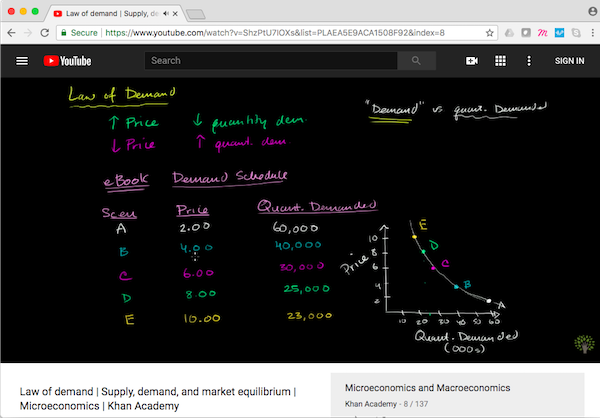 Law of demand | Supply, de
Secure | https://www.youtube.com/watch?v=ShzPtU7IOXs&list=PLAEA5E9ACA1508F92&index=8
YouTube
Search
SIGN IN
Law of Demand
"Demand" vs quant. Demanded
↑ Price ↓ quantity dem.
↓ Price ↑ quant. dem.
eBook Demand Schedule
Scen Price Quant. Demanded
A 2.00 60,000
B 4.00 40,000
C 6.00 30,000
D 8.00 25,000
E 10.00 23,000
Price
10
8
6
4
2
E
D
C
B
A
10 20 30 40 50 60
Quant. Demanded
(000s)
Law of demand | Supply, demand, and market equilibrium |
Microeconomics | Khan Academy
Microeconomics and Macroeconomics
Khan Academy - 8 / 137